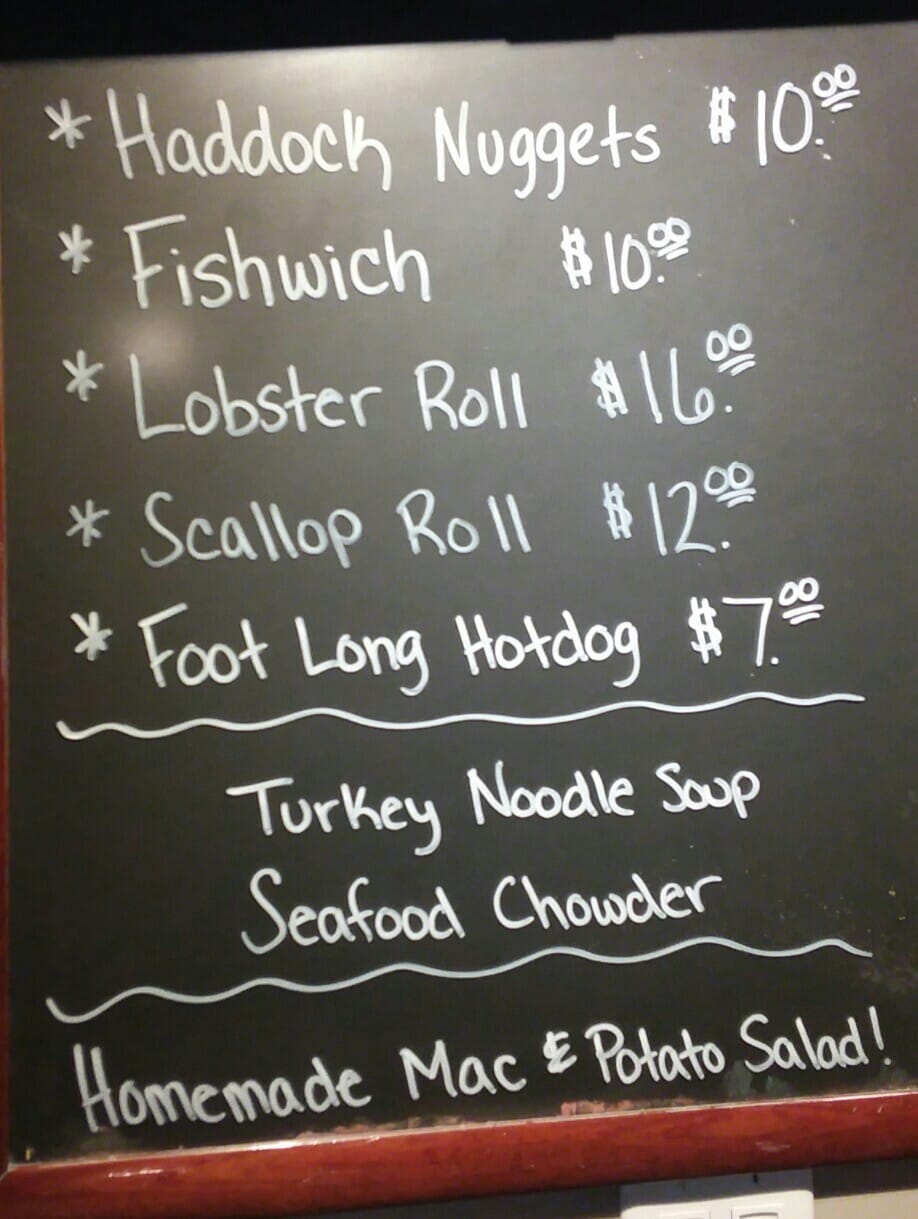 * Haddock Nuggets $10.00
* Fishwich $10.00
* Lobster Roll $16.00
* Scallop Roll $12.00
* Foot Long Hotdog $7.00
Turkey Noodle Soup
Seafood Chowder
Homemade Mac & Potato Salad!